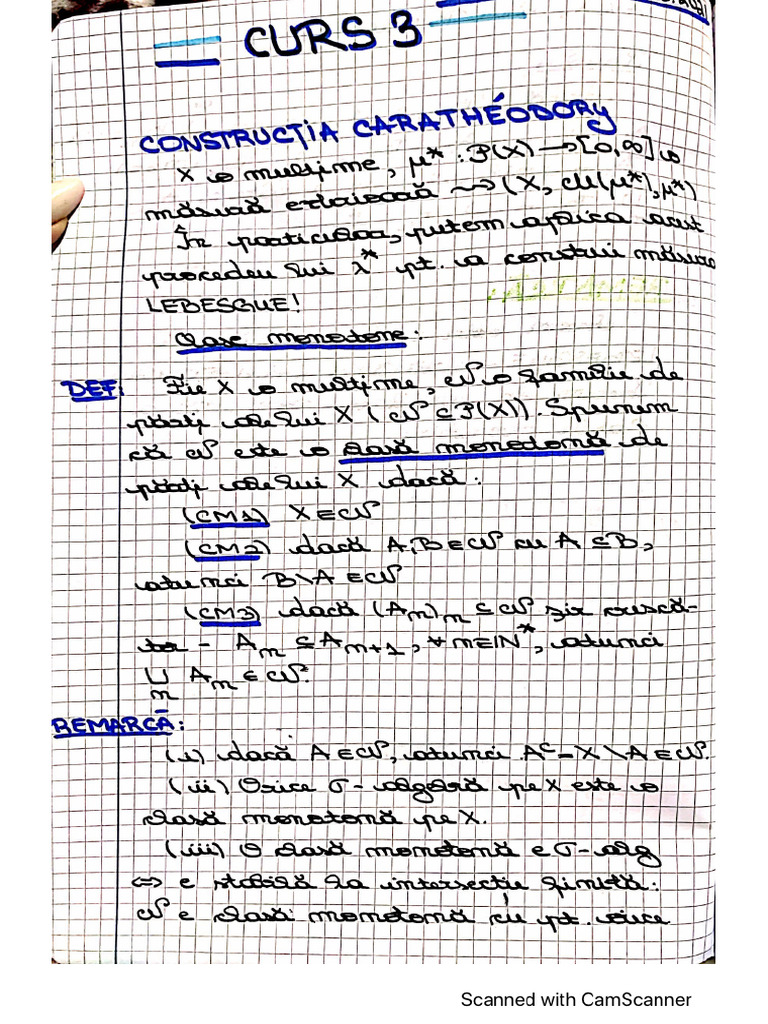 CURS 3
CONSTRUCȚIA CARATHÉODORY
X o mulțime, μ* : P(X) → [0,∞] o
măsură exterioară ⤳ (X, M(μ*), μ*)
În particular, putem aplica acest
procedeu lui λ* pt. a construi măsura
LEBESGUE!
Clase monotone:
DEF: Fie X o mulțime, M o familie de
părți ale lui X (M ⊆ P(X)). Spunem
că M este o clasă monotonă de
părți ale lui X dacă:
(CM1) X ∈ M
(CM2) dacă A, B ∈ M cu A ⊆ B,
atunci B \ A ∈ M
(CM3) dacă (Am)m ⊆ M șir crescă-
tor - Am ⊆ Am+1, ∀ m ∈ N*, atunci
∪ Am ∈ M.
m
REMARCĂ:
(i) dacă A ∈ M, atunci Aᶜ = X \ A ∈ M.
(ii) Orice σ-algebră pe X este o
clasă monotonă pe X.
(iii) O clasă monotonă e σ-alg
⇔ e stabilă la intersecție finită:
M e clasă monotonă cu pt. orice
Scanned with CamScanner